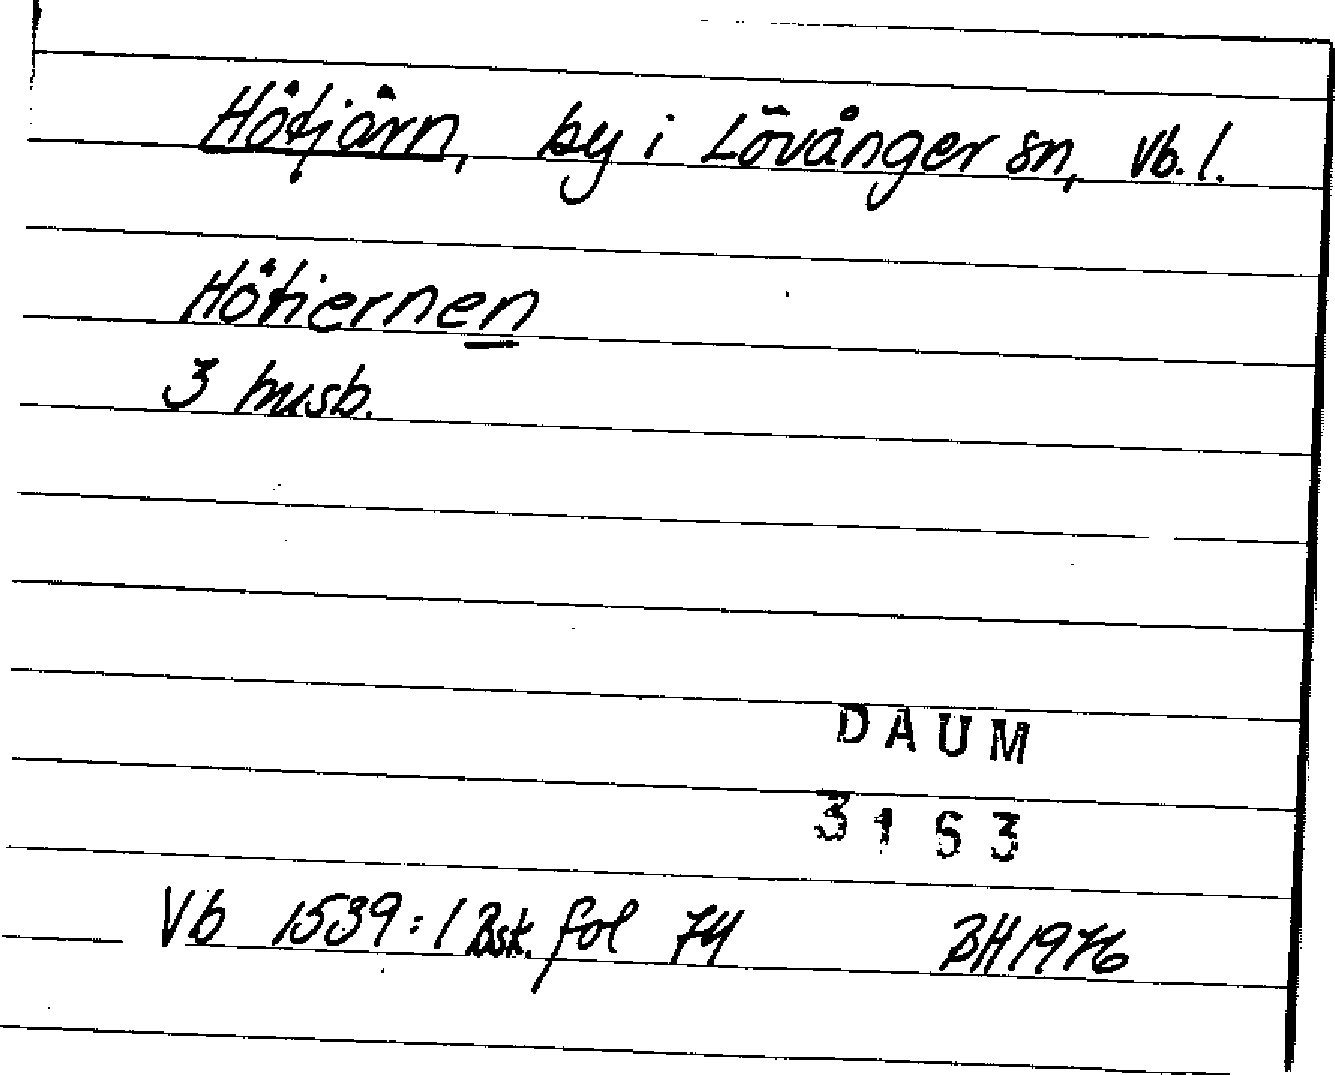 Hötjärn, by i Lövånger sn, Vb. l.
Hötiernen
3 husb.
DAUM
3163
Vb 1539:1 Bsk. fol 74 BH 1976